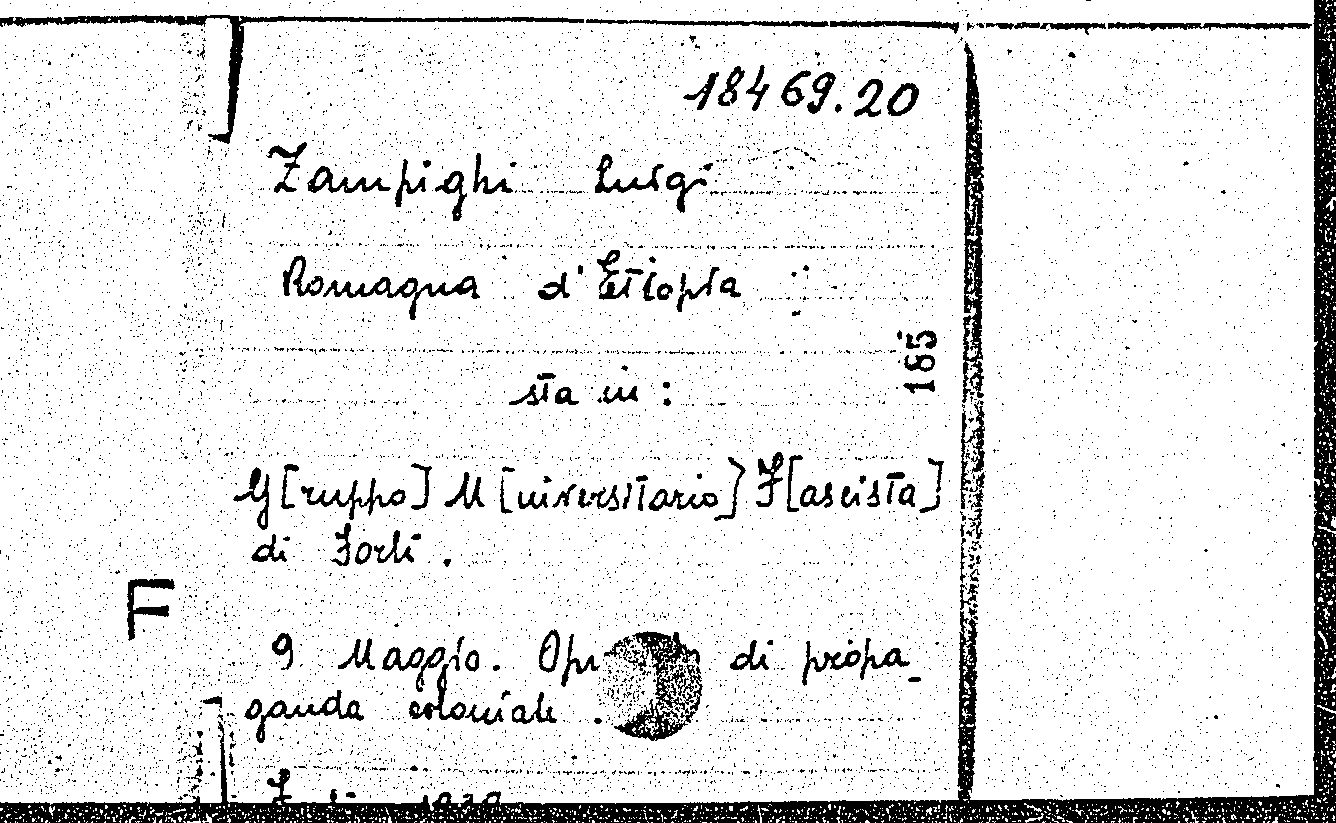 18469.20
Zampighi Luigi
Romagna d'Etiopia
165
sta in :
G[ruppo] U[niversitario] F[ascista]
di Forlì .
F
9 Maggio. di propa_
ganda coloniale .